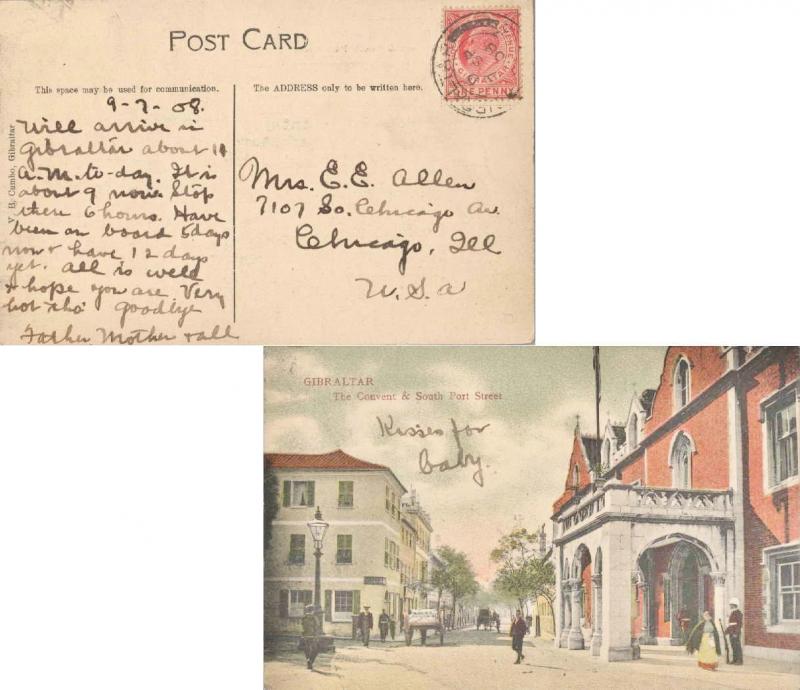 POST CARD
This space may be used for communication.
The ADDRESS only to be written here.
V. B. Cumbo, Gibraltar
GIBRALTAR
ONE PENNY
9-7-08.
Will arrive in
Gibraltar about 11
a.m. to-day. It is
about 9 now. Stop
there 6 hours. Have
been on board 5 days
now & have 12 days
yet. All is well
& hope you are Very
hot tho' goodbye
Father Mother & all
Mrs. E. E. Allen
7107 So. Chicago Av.
Chicago, Ill
U. S. a
GIBRALTAR
The Convent & South Port Street
Kisses for
baby.